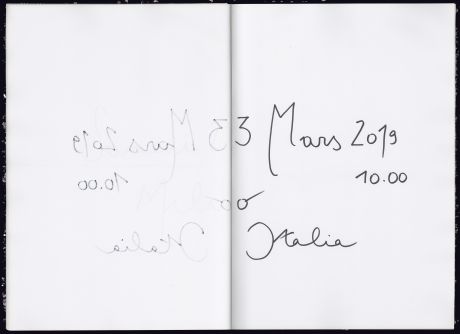 3 Mars 2019
10.00
Italia